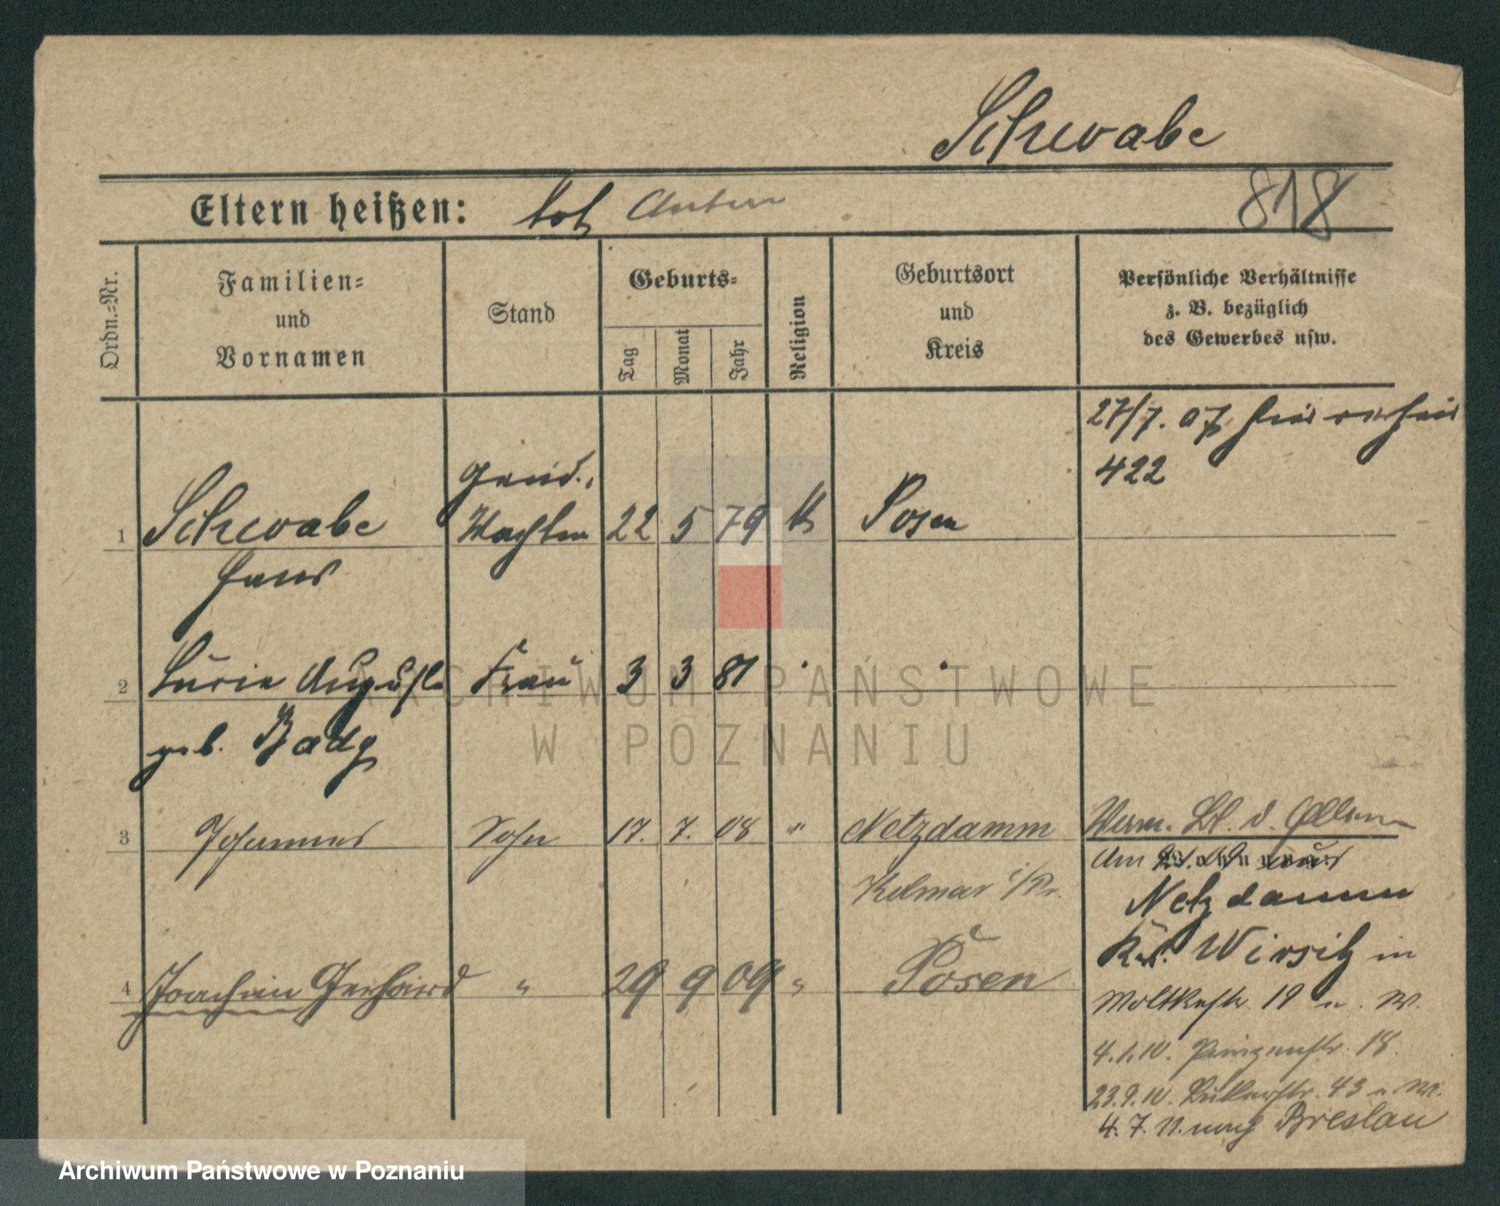 Schwabe
Eltern heißen: tot
818
Ordn.-Nr.
Familien-
und
Vornamen
Stand
Geburts-
Tag
Monat
Jahr
Religion
Geburtsort
und
Kreis
Persönliche Verhältnisse
z. B. bezüglich
des Gewerbes usw.
27/7. 07
422
1 Schwabe 22 5 79 Posen
Hans
2 Luise Auguste Frau 3 3 81 "
geb.
3 Johannes Sohn 17. 7. 08 " Netzdamm
Kolmar i/Pr.
am
Netzdamm
Kr. Wirsitz in
4 Joachim Gerhard " 29 9 09 " Posen
Moltkestr. 19
4.1.10. 18.
23.9.10. 43
4.7.11. nach Breslau
ARCHIWUM PAŃSTWOWE
W POZNANIU
Archiwum Państwowe w Poznaniu